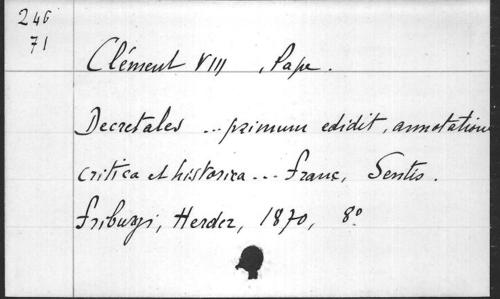 246
71
Clément VIII, Pape.
Decretales ... primum edidit, annotatione
critica et historica ... Franc. Sentis.
Friburgi, Herder, 1870, 8°